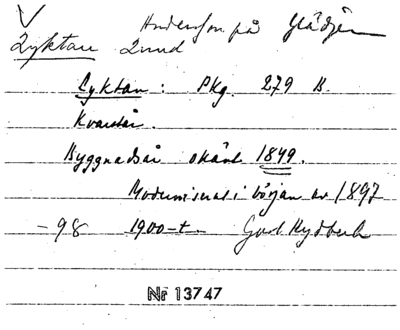 Andersson på Glädjen
Lyktan Lund
Lyktan: Pkg. 279 B.
Kvarstår.
Byggnadsår okänt 1849.
Moderniserat i början av 1897
-98 1900-t. Gard. Rydbeck
Nr 13747